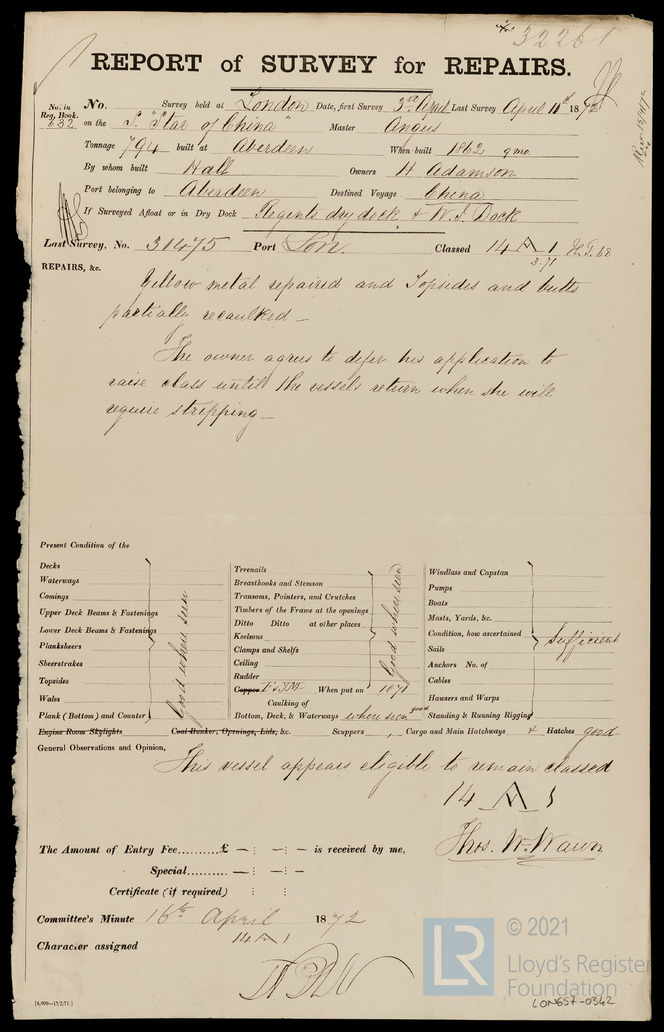 32261
REPORT of SURVEY for REPAIRS.
No. in Reg. Book. 632
No. Survey held at London Date, first Survey 3rd April Last Survey April 11th 1872
on the S. "Star of China" Master Angus
Tonnage 794 built at Aberdeen When built 1862 9mo.
By whom built Hall Owners H Adamson
Port belonging to Aberdeen Destined Voyage China
If Surveyed Afloat or in Dry Dock Regents dry dock & W. I. Dock
Last Survey, No. 31475 Port Lon. Classed 14 A 1
3.71
REPAIRS, &c.
Yellow metal repaired and Topsides and butts
partially recaulked —
The owner agrees to defer his application to
raise class until the vessels return when she will
require stripping —
Present Condition of the
Decks
Waterways
Comings
Upper Deck Beams & Fastenings
Lower Deck Beams & Fastenings
Planksheers
Sheerstrakes
Topsides
Wales
Plank (Bottom) and Counter
good when seen
Treenails
Breasthooks and Stemson
Transoms, Pointers, and Crutches
Timbers of the Frame at the openings
Ditto Ditto at other places
Keelsons
Clamps and Shelfs
Ceiling
Rudder
good when seen
Copper When put on 1071
Caulking of
Bottom, Deck, & Waterways where seen good
Windlass and Capstan
Pumps
Boats
Masts, Yards, &c.
Condition, how ascertained
Sails
Anchors No. of
Cables
Hausers and Warps
Standing & Running Rigging
Sufficient
Engine Room Skylights Coal Bunker, Openings, Lids, &c. Scuppers , Cargo and Main Hatchways & Hatches good
General Observations and Opinion,
This vessel appears eligible to remain classed
14 A 1
Thos. W. Wawn
The Amount of Entry Fee..........£ — : — : — is received by me,
Special.......... — : — : —
Certificate (if required) : :
Committee's Minute 16th April 1872
Character assigned 14 A 1
[4,000—13/2/71.]
LR © 2021
Lloyd's Register
Foundation
LON657-0342